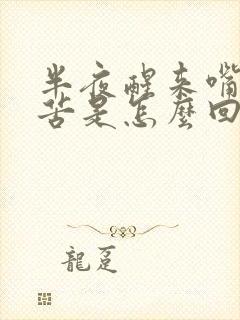 半夜醒来嘴
苦是怎麼回
龍趸